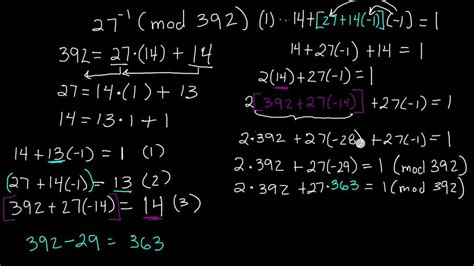 27⁻¹ (mod 392)
392 = 27·(14) + 14
27 = 14·(1) + 13
14 = 13·1 + 1
14 + 13(-1) = 1 (1)
(27 + 14(-1)) = 13 (2)
[392 + 27(-14)] = 14 (3)
392 - 29 = 363
(1)··· 14+[27+14(-1)](-1) = 1
14 + 27(-1) + 14 = 1
2(14) + 27(-1) = 1
2[392 + 27(-14)] + 27(-1) = 1
2·392 + 27(-28) + 27(-1) = 1
2·392 + 27(-29) = 1 (mod 392)
2·392 + 27·363 = 1 (mod 392)